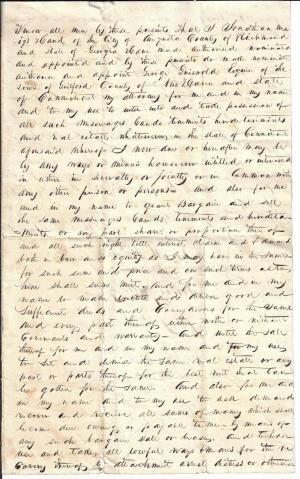 Know all men by these presents That I Jonathan Me
igs Hand of the City of Augusta County of Richmond
and State of Georgia Have made authorised nominated
and appointed and by these presents do make nominate
authorise and appoint George Griswold Esquire of the
Town of Guilford County of New Haven and State
of Connecticut my attorney for me and in my name
and to my use to enter into and take possession of
all such Messuages Lands Tenements hereditaments
and real estate whatsoever in the state of Connecticut
aforesaid whereof I now am or hereafter may be
by any ways or means howsoever intitled or interested
in either in severalty or jointly or in Common with
any other person or persons And also for me
and in my name to grant Bargain and sell
the same Messuages Lands tenements and heredita
ments or any part share or proportion thereof
and all such right title interest claim and demand
both in law and equity as I may have in the same
for such sum and price and on such terms as to
him shall seem meet and for me and in my
name to make Execute and deliver good and
sufficient deeds and Conveyances for the same
and every part thereof either with or without
Covenants and warranty And until the sale
thereof for me and in my name and to my use
to let and demise the same real estate or any
part or parts thereof for the best rent that can
be gotten for the same And also for me and
in my name and to my use to ask demand
recover and receive all sums of money which shall
become due owing or payable to me by means of
any such bargain sale or lease And to have
use and take all lawful ways & means for the re
covery thereof by attachment arrest distress or otherwise